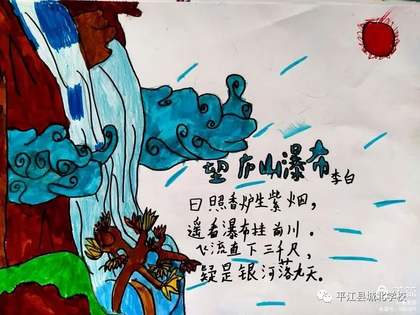 望庐山瀑布
李白
日照香炉生紫烟，
遥看瀑布挂前川。
飞流直下三千尺，
疑是银河落九天。
平江县城北学校